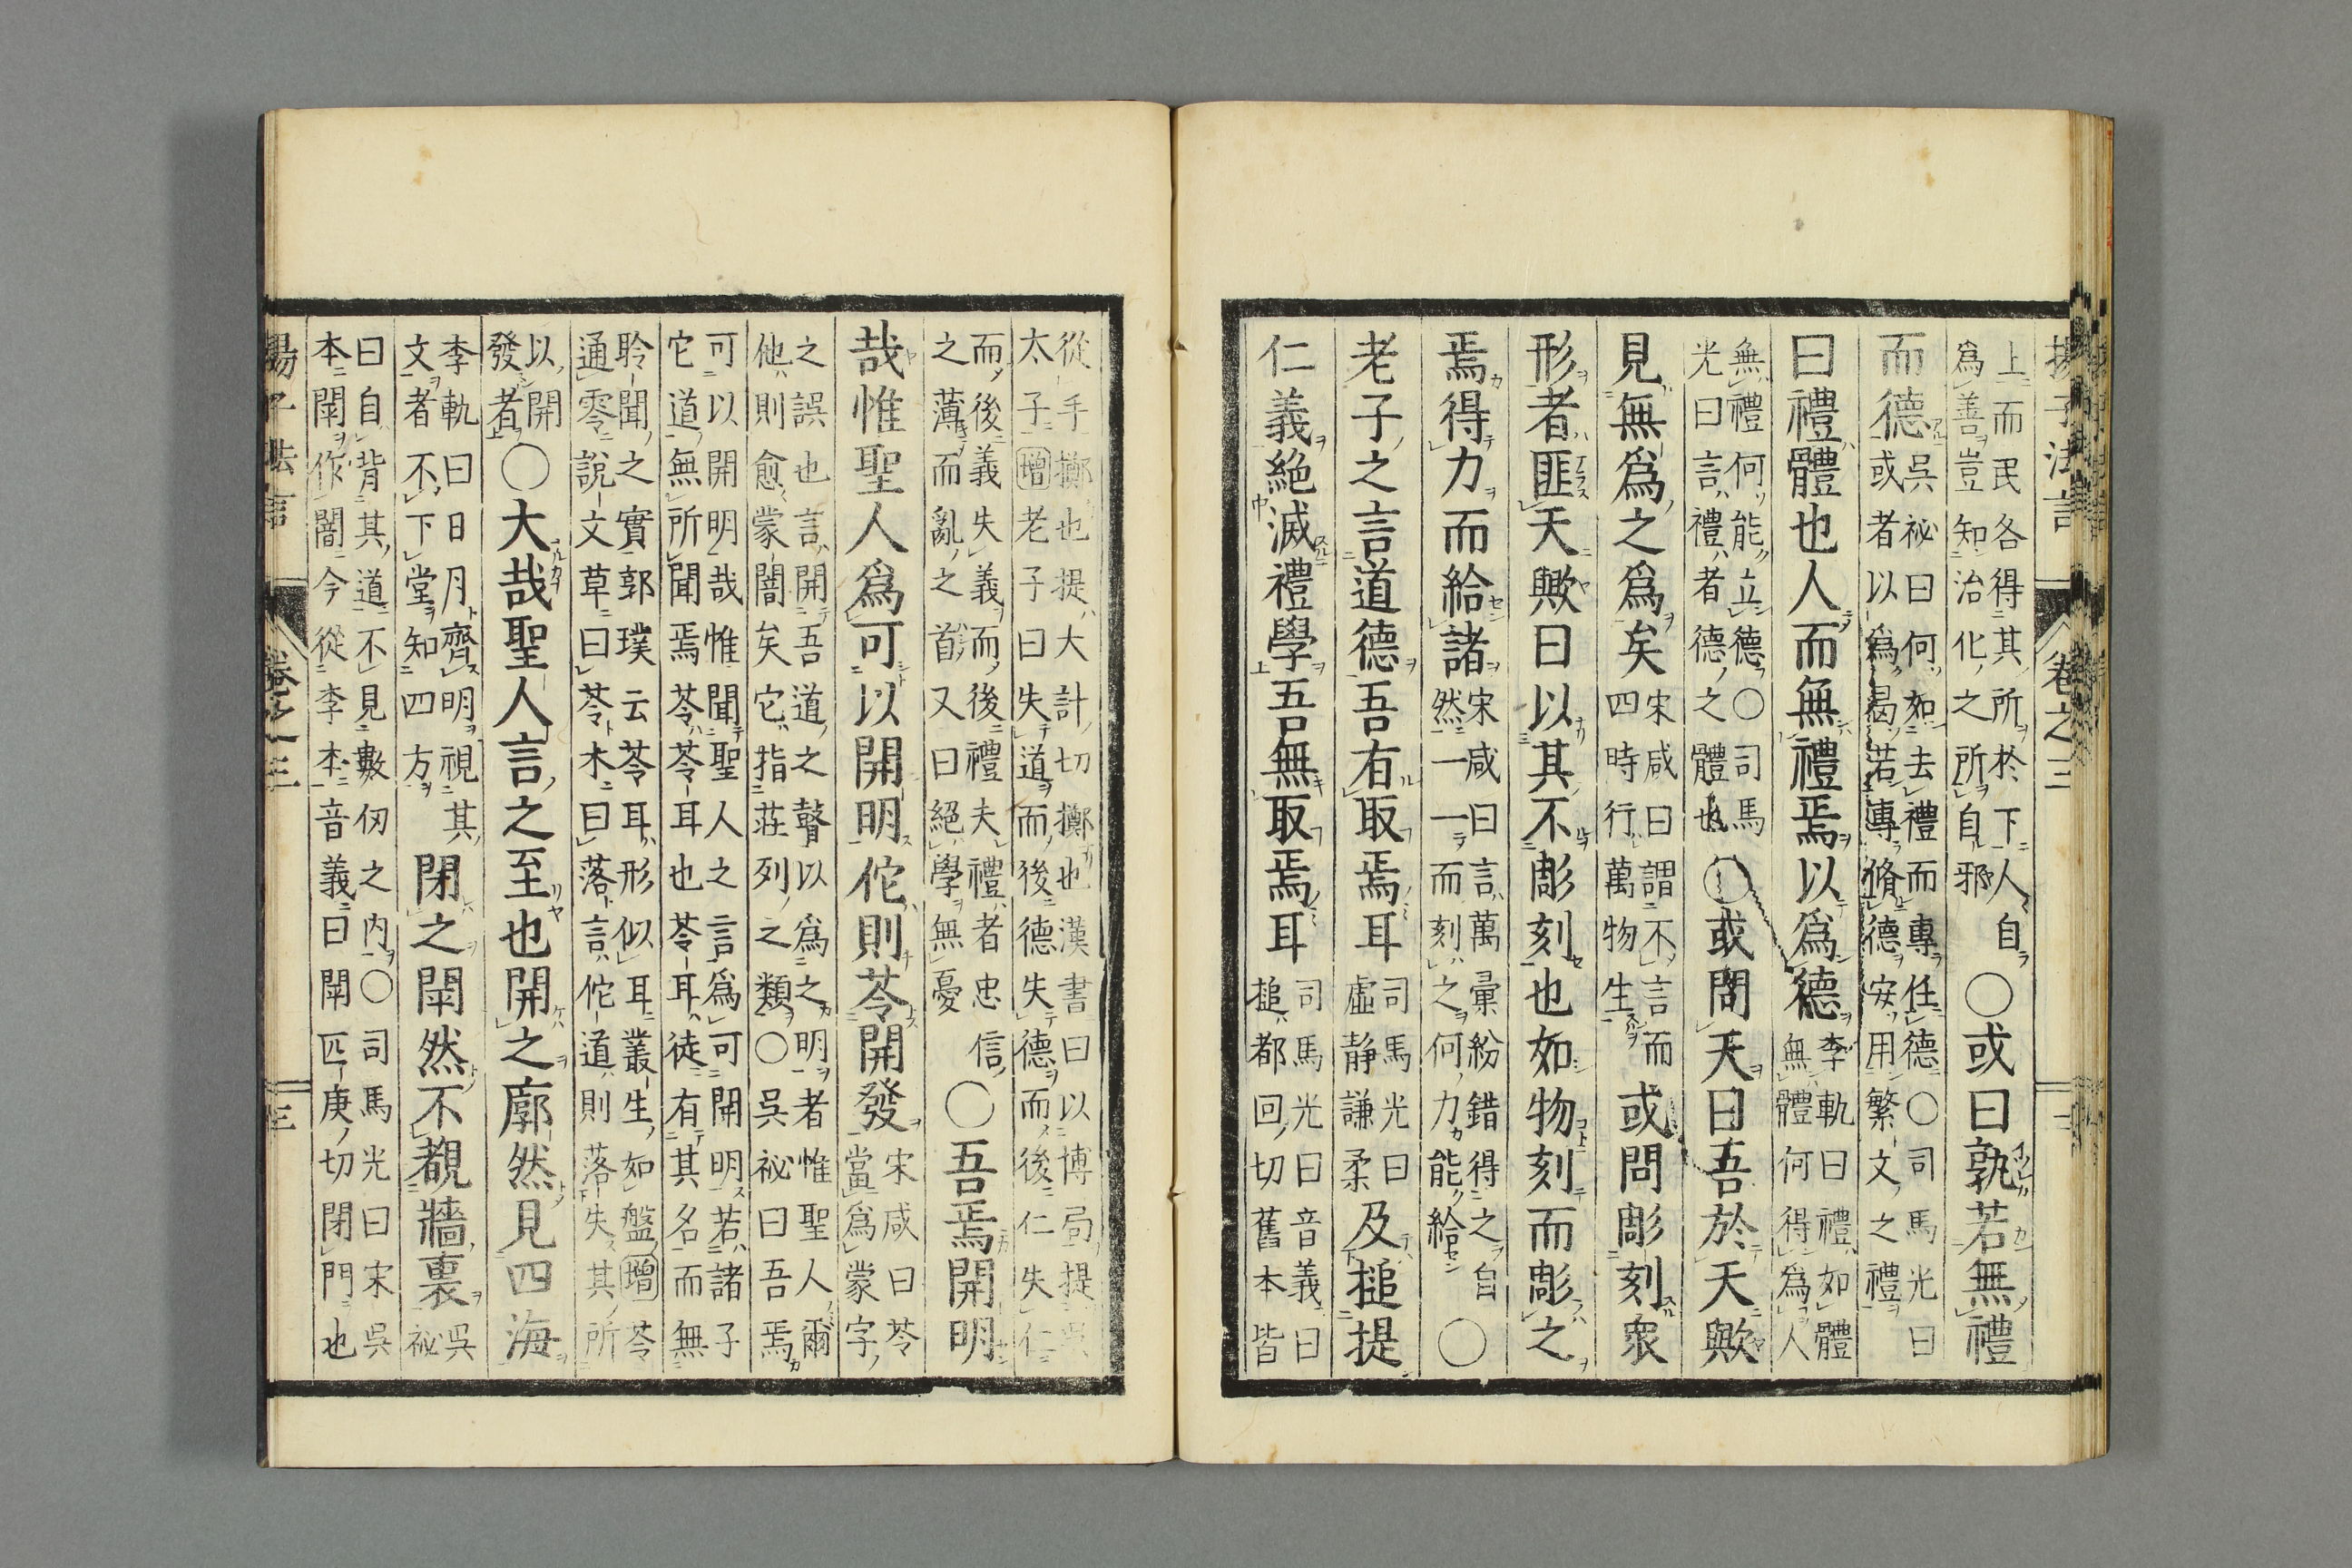 揚子法言 卷之三
上而民各得其所於下人自
爲善豈知治化之所自邪
○或曰孰若無禮
而德
吳祕曰何如去禮而專任德○司馬光曰
或者以爲曷若專脩德安用繁文之禮
曰禮體也人而無禮焉以爲德
李軌曰禮如體
無體何得爲人
無禮何能立德○司馬
光曰言禮者德之體也
○或問天曰吾於天歟
見無爲之爲矣
宋咸曰謂不言而
四時行萬物生
或問彫刻衆
形者匪天歟曰以其不彫刻也如物刻而彫之
焉得力而給諸
宋咸曰言萬彙紛錯得之自
然一一而刻之何力能給
○
老子之言道德吾有取焉耳
司馬光曰
虛靜謙柔
及搥提
仁義絕滅禮學吾無取焉耳
司馬光曰音義曰
搥都回切舊本皆
從手擲也提大計切擲也漢書曰以博局提吳
太子增老子曰失道而後德失德而後仁失仁
而後義失義而後禮夫禮者忠信
之薄而亂之首又曰絕學無憂
○吾焉開明
哉惟聖人爲可以開明佗則苓開發
宋咸曰苓
當爲蒙字
之誤也言開吾道之瞽以爲之明者惟聖人爾
他則愈蒙闇矣它指莊列之類○吳祕曰吾焉
可以開明哉惟聞聖人之言爲可開明若諸子
它道無所聞焉苓苓耳也苓耳徒有其名而無
聆聞之實郭璞云苓耳形似耳叢生如盤增苓
通零說文草曰苓木曰落言佗道則落失其所
以開
發者
○大哉聖人言之至也開之廓然見四海
李軌曰日月齊明視其
文者不下堂知四方
閉之閛然不覩牆裏
吳
祕
曰自背其道不見數仞之內○司馬光曰宋吳
本閛作闇今從李本音義曰閛匹庚切閉門也
揚子法言 卷之三 三